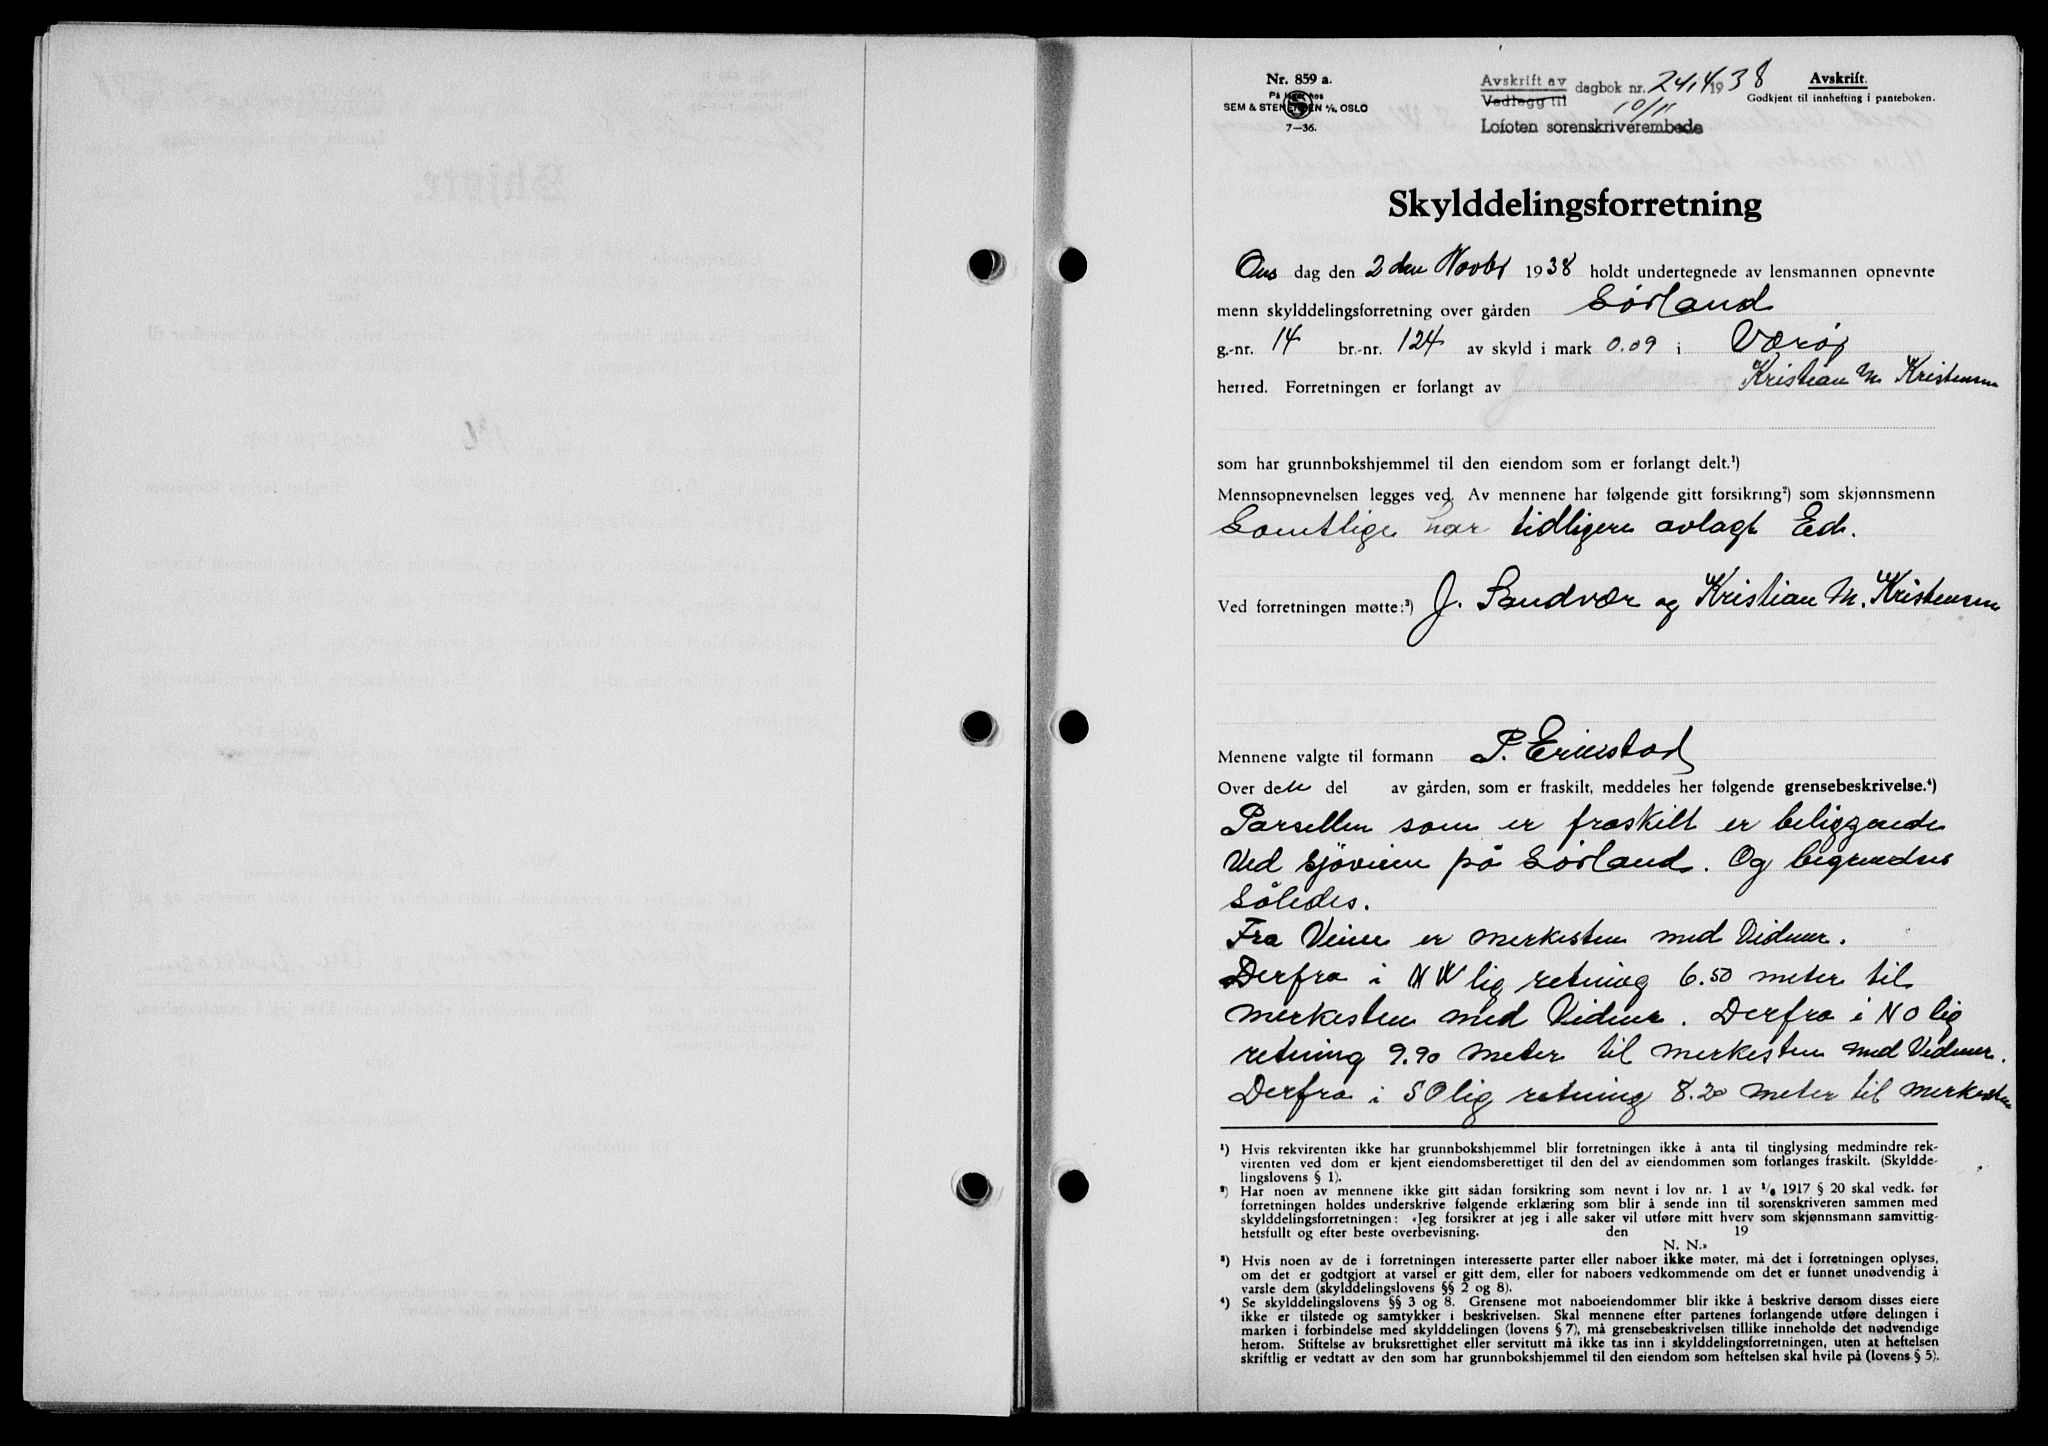 Nr. 859 a.
På lager hos
SEM & STENERSEN A/S, OSLO
7—36.
Avskrift av
Vedlegg til
dagbok nr. 2414 1938
10/11
Lofoten sorenskriverembede
Avskrift.
Godkjent til innhefting i panteboken.
Skylddelingsforretning
Ons dag den 2 den Novbr 1938 holdt undertegnede av lensmannen opnevnte
menn skylddelingsforretning over gården Sørland
g.-nr. 14 br.-nr. 124 av skyld i mark 0.09 i Værøy
herred. Forretningen er forlangt av Kristian M. Kristensen
som har grunnbokshjemmel til den eiendom som er forlangt delt.¹)
Mennsopnevnelsen legges ved. Av mennene har følgende gitt forsikring²) som skjønnsmenn
Samtlige har tidligere avlagt Ed.
Ved forretningen møtte:³) J. Sandvær og Kristian M. Kristensen
Mennene valgte til formann P. Erikstad
Over den del av gården, som er fraskilt, meddeles her følgende grensebeskrivelse.⁴)
Parsellen som er fraskilt er beliggende
Ved sjøveien på Sørland. Og begrendses
Således.
Fra Veien er merkesten med Vidner.
Derfra i NV lig retning 6.50 meter til
merkesten med Vidner. Derfra i NO lig
retning 9.90 meter til merkesten med Vidner.
Derfra i SO lig retning 8.20 meter til merkesten
¹) Hvis rekvirenten ikke har grunnbokshjemmel blir forretningen ikke å anta til tinglysing medmindre rek-
virenten ved dom er kjent eiendomsberettiget til den del av eiendommen som forlanges fraskilt. (Skyldde-
lingslovens § 1).
²) Har noen av mennene ikke gitt sådan forsikring som nevnt i lov nr. 1 av 1/6 1917 § 20 skal vedk. før
forretningen holdes underskrive følgende erklæring som blir å sende inn til sorenskriveren sammen med
skylddelingsforretningen: «Jeg forsikrer at jeg i alle saker vil utføre mitt hverv som skjønnsmann samvittig-
hetsfullt og efter beste overbevisning. den 19
N. N.»
³) Hvis noen av de i forretningen interesserte parter eller naboer ikke møter, må det i forretningen oplyses,
om det er godtgjort at varsel er gitt dem, eller for naboers vedkommende om det er funnet unødvendig å
varsle dem (skylddelingslovens §§ 2 og 8).
⁴) Se skylddelingslovens §§ 3 og 8. Grensene mot naboeiendommer blir ikke å beskrive dersom disses eiere
ikke er tilstede og samtykker i beskrivelsen. Skal mennene efter partenes forlangende utføre delingen i
marken i forbindelse med skylddelingen (lovens § 7), må grensebeskrivelsen tillike inneholde det nødvendige
herom. Stiftelse av bruksrettighet eller servitutt må ikke tas inn i skylddelingsforretningen, uten at heftelsen
skriftlig er vedtatt av den som har grunnbokshjemmel til den eiendom som heftelsen skal hvile på (lovens § 5).